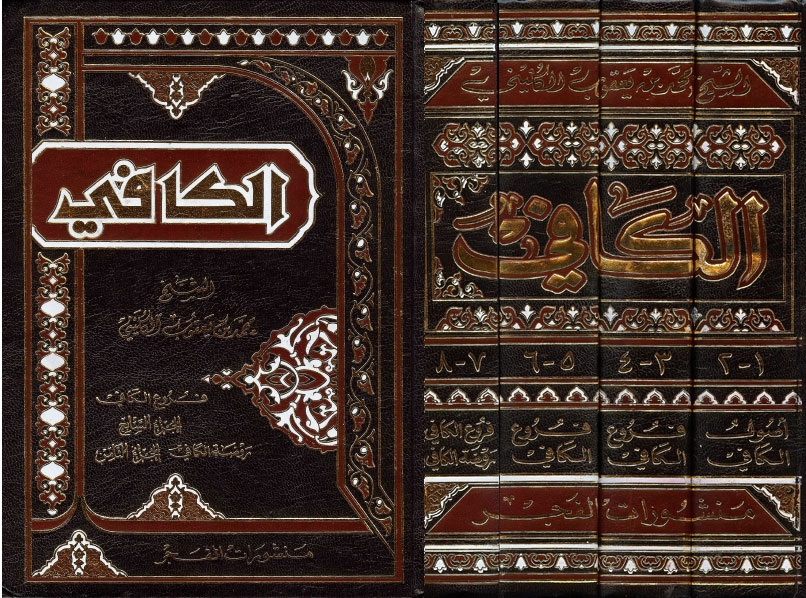 الكافي
الشيخ
محمد بن يعقوب الكليني
فروع الكافي
الجزء السابع
روضة الكافي الجزء الثامن
منشورات الفجر
الشيخ محمد بن يعقوب الكليني
الكافي
١-٢ ٣-٤ ٥-٦ ٧-٨
أصول الكافي
فروع الكافي
فروع الكافي
فروع الكافي روضة الكافي
منشورات الفجر